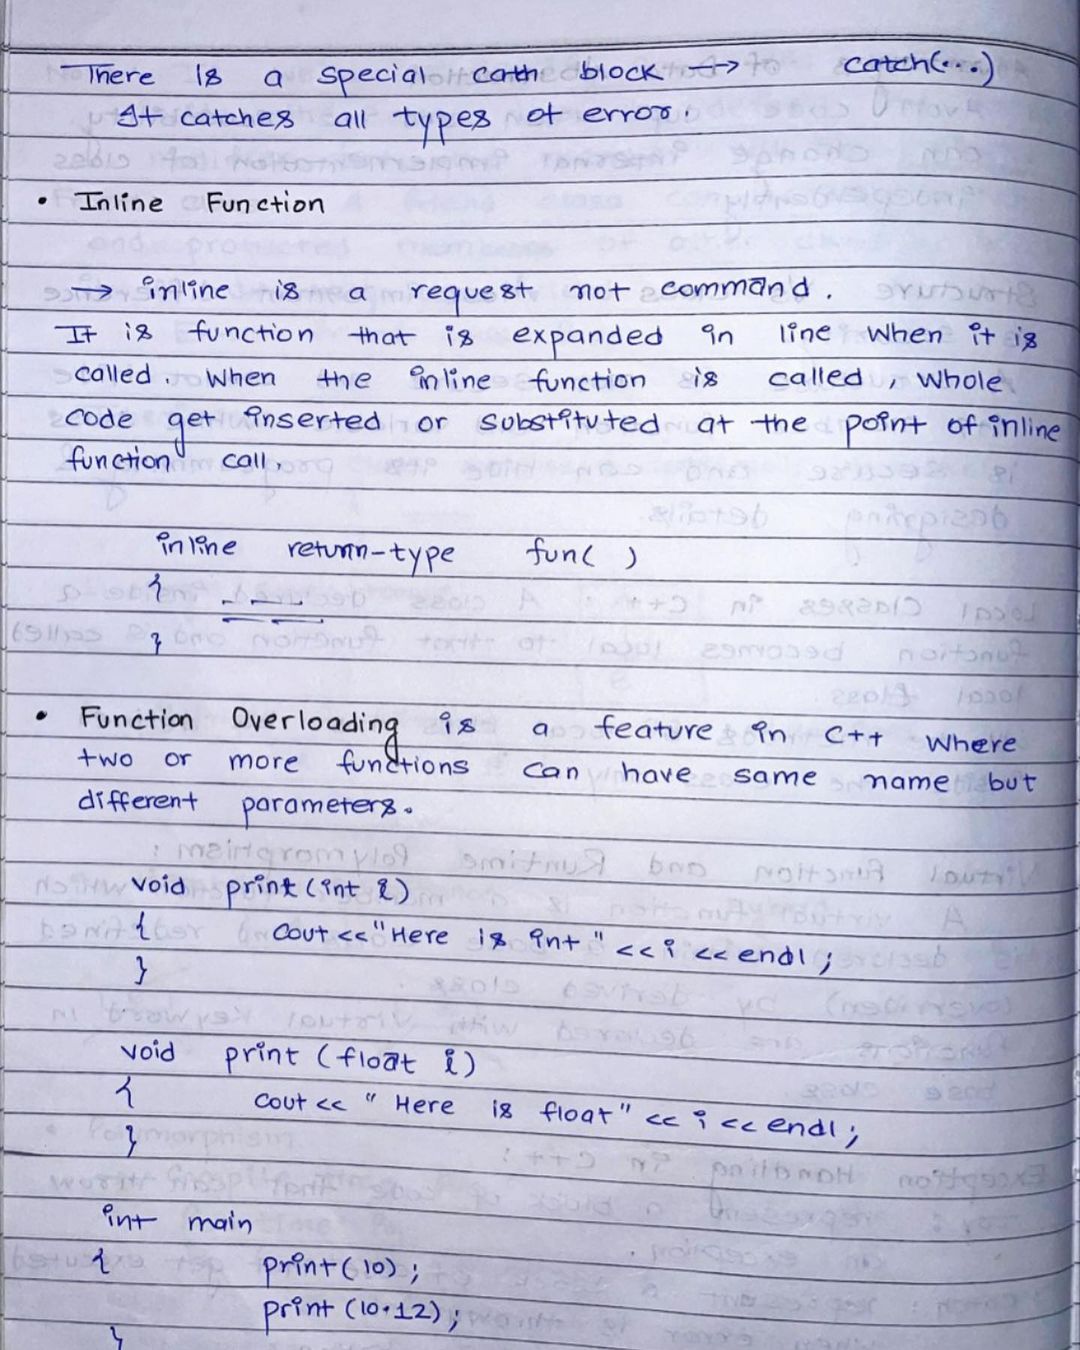 There Is a special cath block → catch(...)
It catches all types of error.
• Inline Function
→ inline is a request not command.
It is function that is expanded in line when it is
called. When the inline function is called, whole
code get inserted or substituted at the point of inline
function call.
inline return-type fun( )
{
}
• Function Overloading is a feature in C++ where
two or more functions can have same name but
different parameters.
void print (int i)
{ cout << "Here is int" << i << endl;
}
void print (float i)
{ cout << " Here is float" << i << endl;
}
int main
{ print(10);
print (10.12);
}